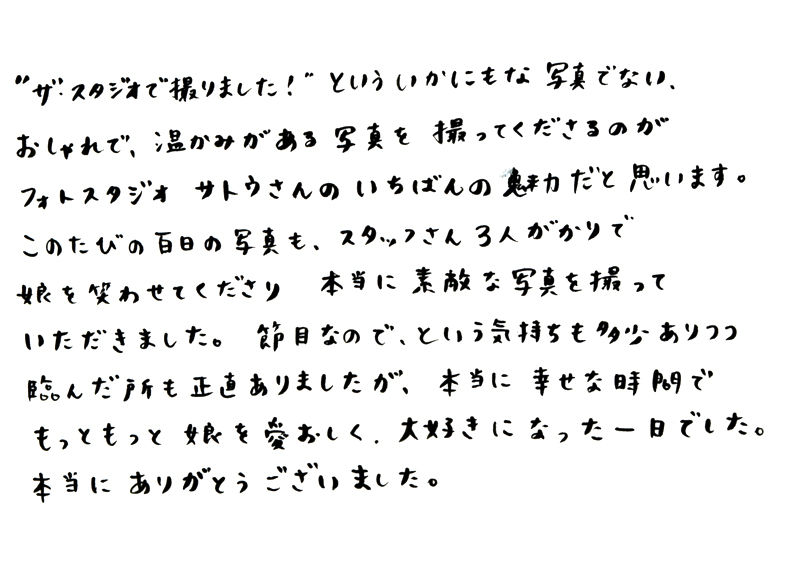 "ザ・スタジオで撮りました！" といういかにもな 写真でない、
おしゃれで、温かみがある 写真を 撮ってくださるのが
フォトスタジオ サトウさんの いちばんの 魅力だと 思います。
このたびの 百日の 写真も、スタッフさん 3人がかりで
娘を 笑わせてくださり 本当に 素敵な 写真を 撮って
いただきました。 節目なので、という気持ちも 多少 ありつつ
臨んだ所も 正直ありましたが、 本当に 幸せな 時間で
もっともっと 娘を 愛おしく、大好きに なった 一日でした。
本当に ありがとう ございました。